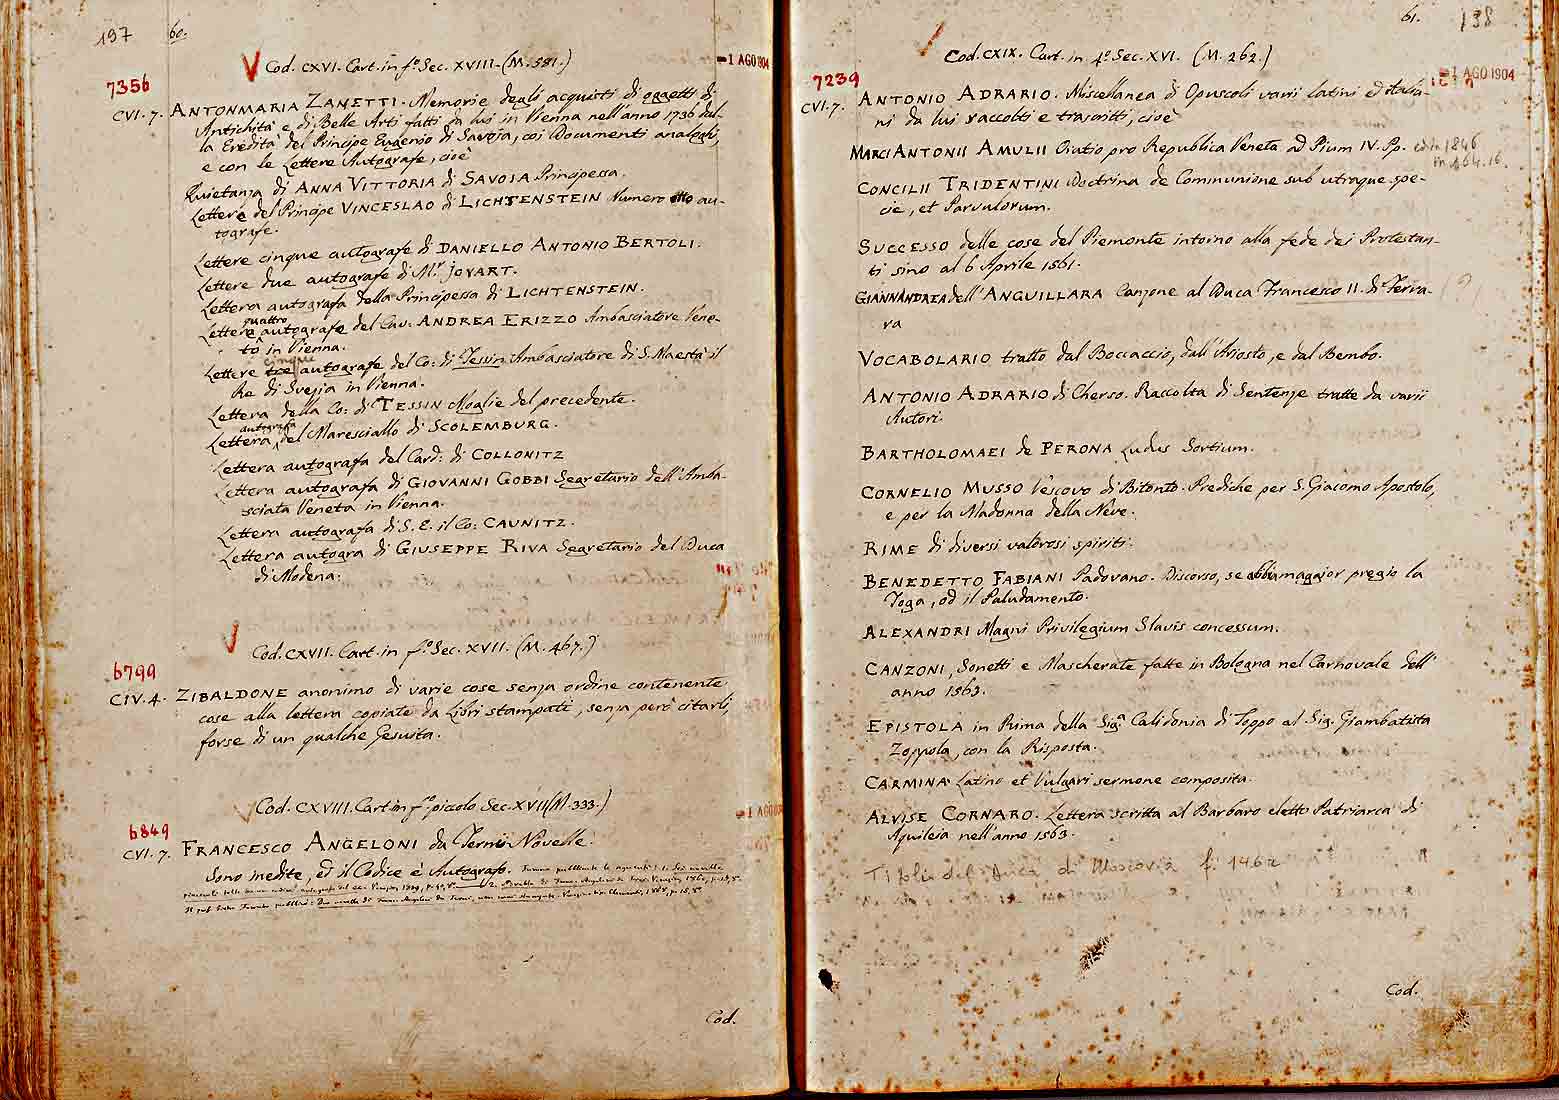 137 60.
Cod. CXVI. Cart. in fº. Sec. XVIII. (M. 581.)
1 AGO 1904
7356
CVI. 7. ANTONMARIA ZANETTI. Memorie degli acquisti di oggetti di
Antichità e di Belle Arti fatti da lui in Vienna nell'anno 1736 dal-
la Eredità del Principe Eugenio di Savoja, coi Documenti analoghi,
e con le Lettere Autografe, cioè
Quietanza di ANNA VITTORIA di SAVOIA Principessa.
Lettere del Principe VINCESLAO di LICHTENSTEIN Numero otto au-
tografe.
Lettere cinque autografe di DANIELLO ANTONIO BERTOLI.
Lettere due autografe di M.r JOVART.
Lettera autografa della Principessa di LICHTENSTEIN.
quattro
Lettere autografe del Cav: ANDREA ERIZZO Ambasciatore Vene-
to in Vienna.
cinque
Lettere tre autografe del Co: di Tessin Ambasciatore di S. Maestà il
Re di Svezia in Vienna.
Lettera della Co: di TESSIN Moglie del precedente.
autografa
Lettera del Maresciallo di SCOLEMBURG.
Lettera autografa del Card: di COLLONITZ
Lettera autografa di GIOVANNI GOBBI Segretario dell'Amba-
sciata Veneta in Vienna.
Lettera autografa di S. E. il Co: CAUNITZ.
Lettera autogra di GIUSEPPE RIVA Segretario del Duca
di Modena.
Cod. CXVII. Cart. in fº. Sec. XVII. (M. 467.)
6799
CIV. 4. ZIBALDONE anonimo di varie cose senza ordine contenente
cose alla lettera copiate da Libri stampati, senza però citarli,
forse di un qualche Gesuita.
Cod. CXVIII. Cart. in fº. piccolo Sec. XVII (M. 333.)
1 AGO
6849
CVI. 7. FRANCESCO ANGELONI da Terni Novelle.
Sono inedite, ed il Codice è Autografo.
Cod.
61. 138
Cod. CXIX. Cart. in 4º. Sec. XVI. (M. 262.)
1 AGO 1904
7239
CVI. 7. ANTONIO ADRARIO. Miscellanea di Opuscoli varii latini ed italia-
ni da lui raccolti e trascritti, cioè
MARCI ANTONII AMULII Oratio pro Republica Veneta ad Pium IV. Pp. ed in 1846
in 464.16.
CONCILII TRIDENTINI Doctrina de Communione sub utraque spe-
cie, et Parvulorum.
SUCCESSO delle cose del Piemonte intorno alla fede dei Protestan-
ti sino al 6 Aprile 1561.
GIANNANDREA dell'ANGUILLARA Canzone al Duca Francesco II. di Ferra-
ra
VOCABOLARIO tratto dal Boccaccio, dall'Ariosto, e dal Bembo.
ANTONIO ADRARIO di Cherso. Raccolta di Sentenze tratte da varii
Autori.
BARTHOLOMAEI de PERONA Ludus Sortium.
CORNELIO MUSSO Vescovo di Bitonto. Prediche per S. Giacomo Apostolo,
e per la Madonna della Neve.
RIME di diversi valorosi spiriti.
BENEDETTO FABIANI Padovano. Discorso, se abbia maggior pregio la
Toga, od il Paludamento.
ALEXANDRI Magni Privilegium Slavis concessum.
CANZONI, Sonetti e Mascherate fatte in Bologna nel Carnovale dell'
anno 1563.
EPISTOLA in Rima della Sig.a Calidonia di Toppo al Sig. Giambatista
Zoppola, con la Risposta.
CARMINA Latino et Vulgari sermone composita.
ALVISE CORNARO. Lettera scritta al Barbaro eletto Patriarca di
Aquileia nell'anno 1563.
del Duca di Moscovia
Cod.